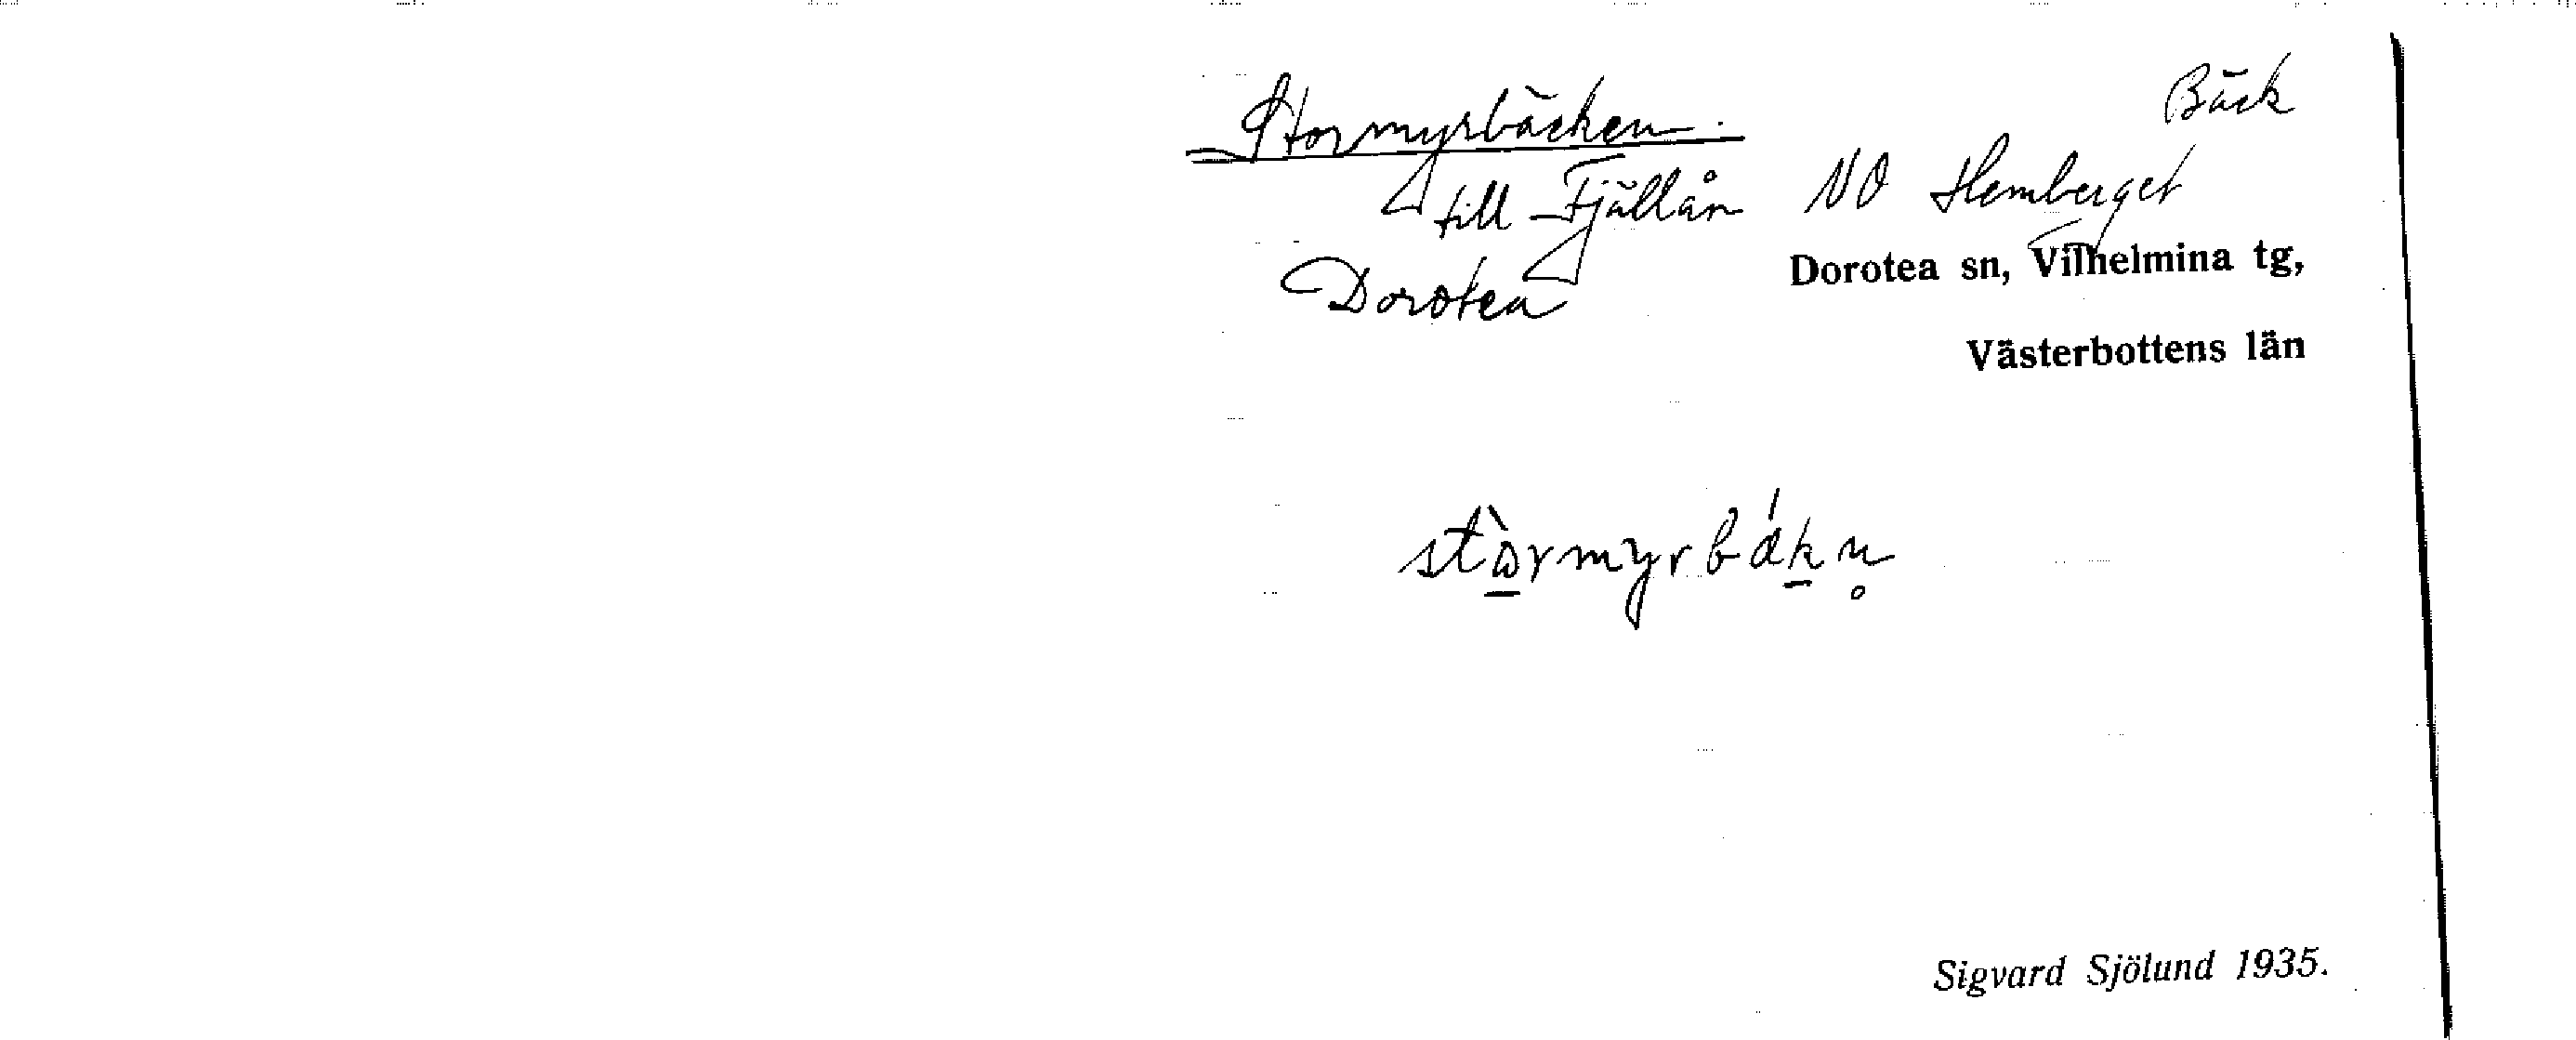 Stormyrbäcken. Bäck
till Fjällån NO Hemberget
Dorotea Dorotea sn, Vilhelmina tg,
Västerbottens län
stòrmyrbákn̥
Sigvard Sjölund 1935.